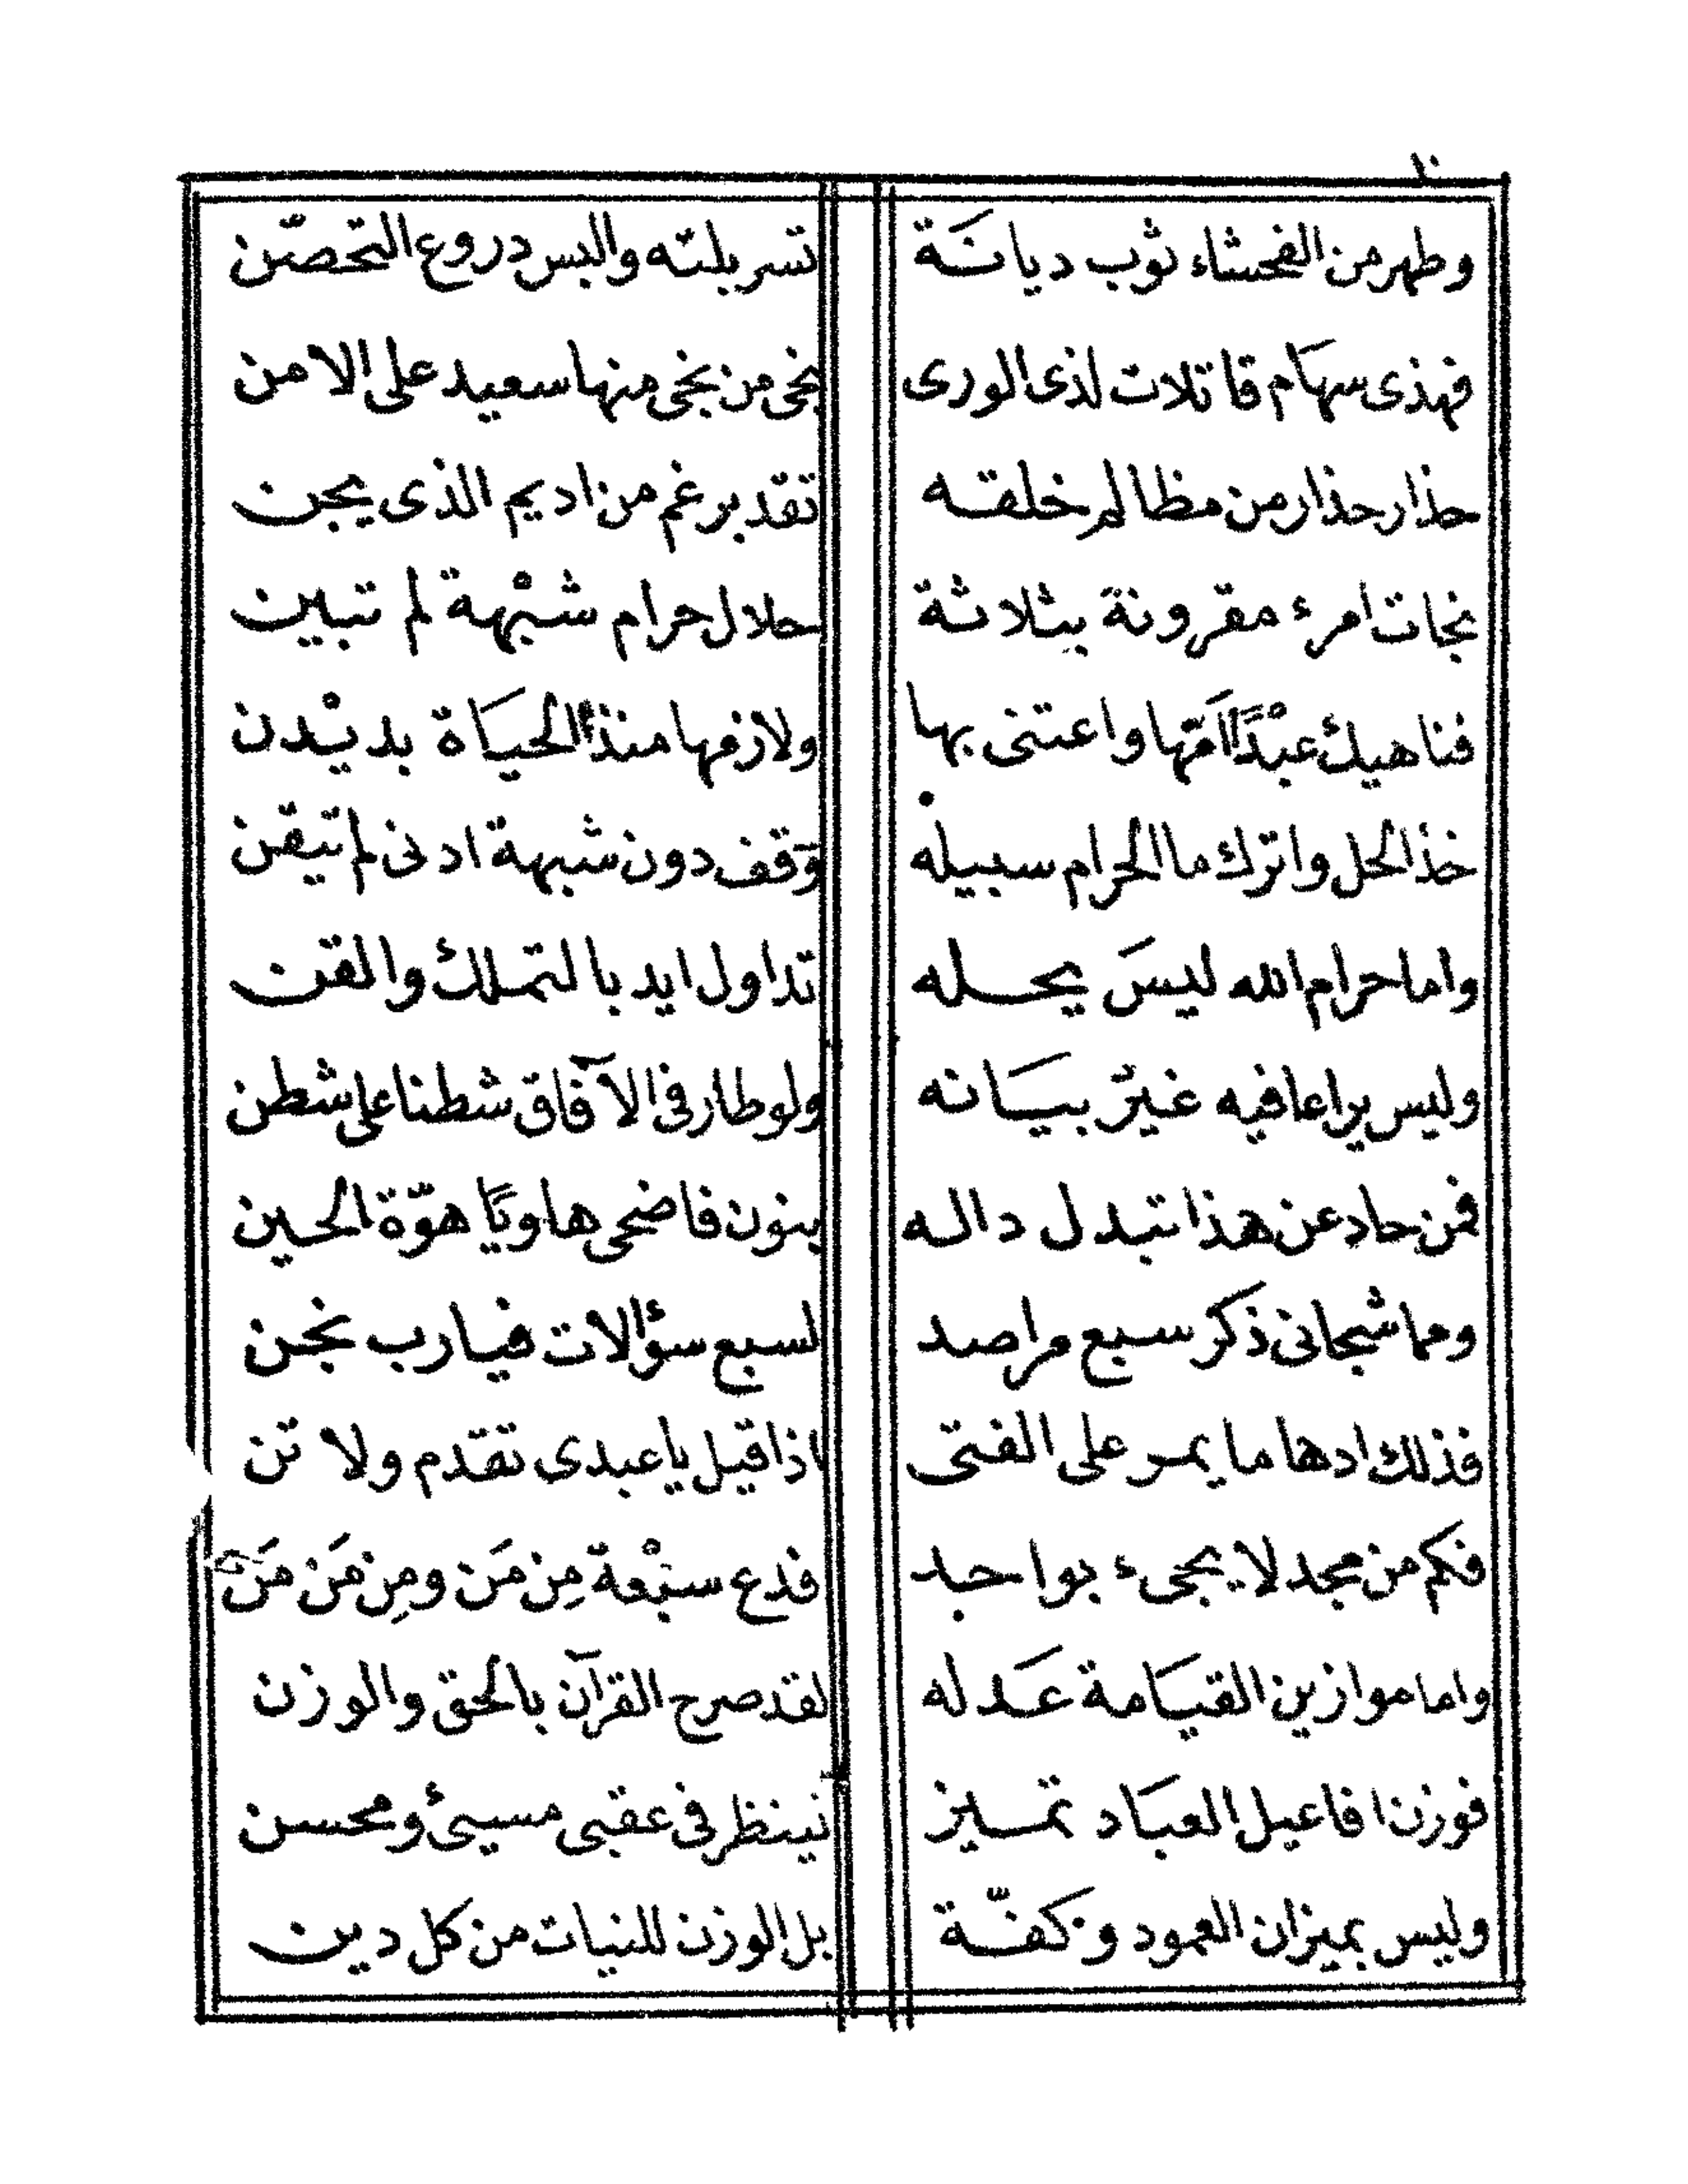 ١٠
وطهر من الفحشاء ثوب ديانَة تسربلته والبس دروع التحصّن
فهذى سهَام قاتلات لذى الورى نجى من نجى منها سعيد على الامن
حذار حذار من مظالم خلقه تقد برغم من اديم الذى يجن
نجات امرء مقرونة بثلاثة حلال حرام شبْهة لم تبين
فناهيك عبْدًا امّها واعتنى بها ولازمها منذ الحيَاة بديْدن
خذ الحل واترك ما الحرام سبيله وَقف دون شبهة ادنى لم تيقن
واما حرام الله ليسَ يحله تداول ايد بالتملك والقن
وليس براعا فيه غيْر بيَانه ولو طار فى الآفاق شطنا على شطن
فمن حاد عن هذا تبدل داله بنون فاضحى هاويًا هوّة الحين
ومما شجانى ذكر سبع مراصد لسبع سؤالات فيارب نجن
فذلك ادها ما يمر على الفتى اذا قيل يا عبدى تقدم ولا تن
فكم من مجد لا يجىء بواحد فدع سبْعة مِن مَن ومِن مَن مَن
واما موازين القيَامة عَدله لقد صرح القرآن بالحق والوزن
فوزن افاعيل العبَاد تميز نينظر فى عقبى مسيئ ومحسن
وليس بميزان العمود وكفّة بل الوزن للنيات من كل دين